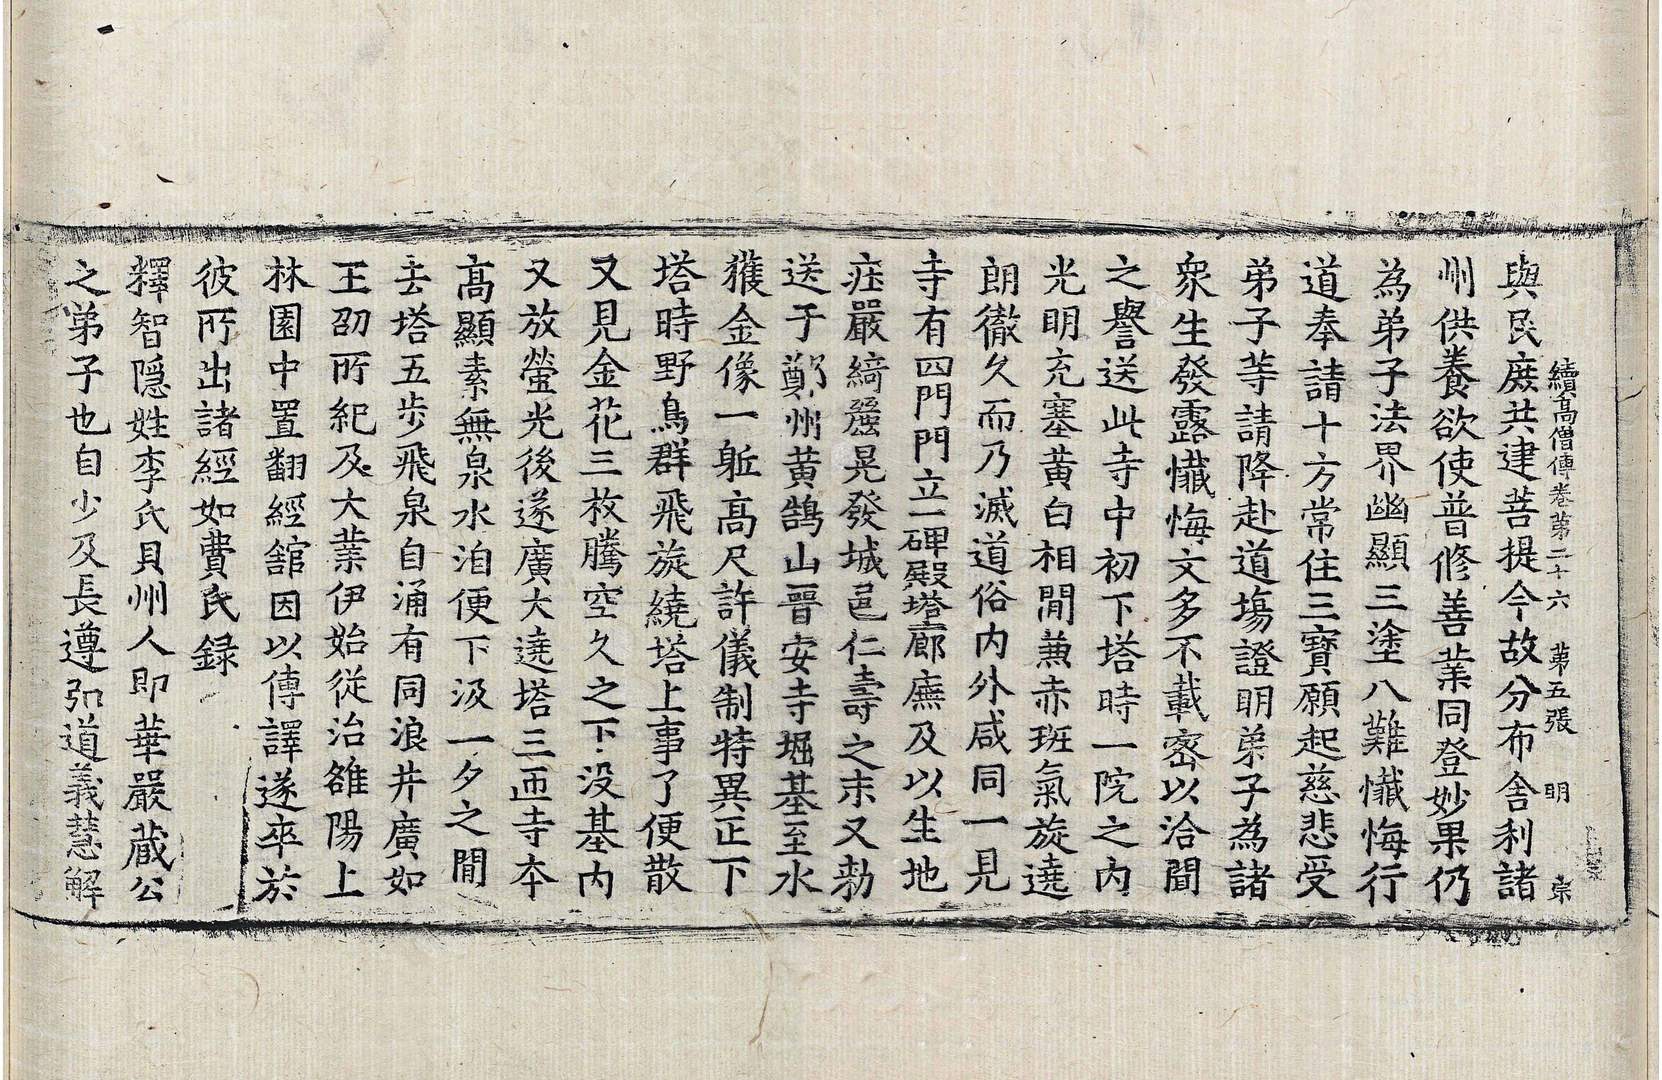 續高僧傳卷第二十六　第五張　明　宗
與民庶共建菩提今故分布舍利諸
州供養欲使普修善業同登妙果仍
為弟子法界幽顯三塗八難懺悔行
道奉請十方常住三寶願起慈悲受
弟子等請降赴道場證明弟子為諸
衆生發露懺悔文多不載密以洽聞
之譽送此寺中初下塔時一院之内
光明充塞黄白相間兼赤班氣旋遶
朗徹久而乃滅道俗内外咸同一見
寺有四門門立一碑殿塔廊廡及以生地
莊嚴綺麗晃發城邑仁壽之末又勑
送于鄭州黄鵠山晉安寺堀基至水
獲金像一軀高尺許儀制特異正下
塔時野鳥群飛旋繞塔上事了便散
又見金花三枚騰空久之下没基内
又放螢光後遂廣大遶塔三匝寺本
高顯素無泉水洎便下汲一夕之間
去塔五步飛泉自涌有同浪井廣如
王劭所紀及大業伊始從治雒陽上
林園中置翻經舘因以傳譯遂卒於
彼所出諸經如費氏録
釋智隱姓李氏貝州人即華嚴蔵公
之弟子也自少及長遵弘道義慧解